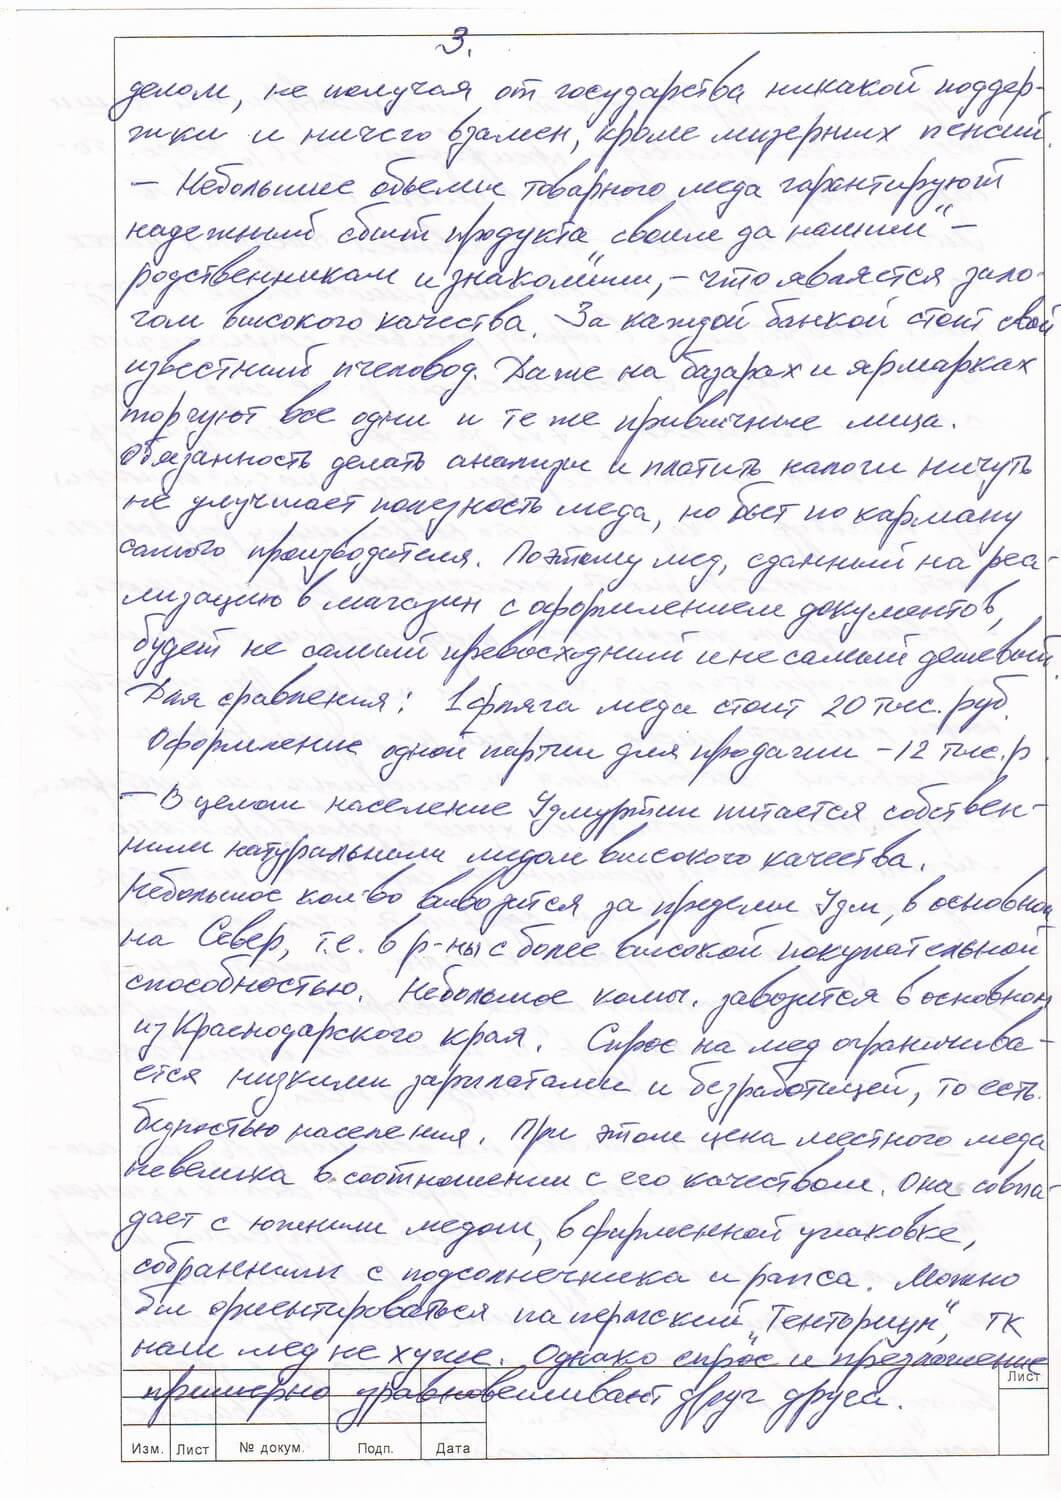 3.
делом, не получая от государства никакой поддер-
жки и ничего взамен, кроме мизерных пенсий.
– Небольшие объемы товарного меда гарантируют
надежный сбыт продукта „своим да нашим" –
родственникам и знакомым, – что является зало-
гом высокого качества. За каждой банкой стоит свой
известный пчеловод. Даже на базарах и ярмарках
торгуют все одни и те же привычные лица.
Обязанность делать анализы и платить налоги ничуть
не улучшает полезность меда, но бьет по карману
самого производителя. Поэтому мед, сданный на реа-
лизацию в магазин с оформлением документов,
будет не самый превосходный и не самый дешевый.
Для сравнения: 1 фляга меда стоит 20 тыс. руб.
Оформление одной партии для продажи – 12 тыс. р.
– В целом население Удмуртии питается собствен-
ным натуральным медом высокого качества.
Небольшое кол-во вывозится за пределы Удм, в основном
на Север, т.е. в р-ны с более высокой покупательной
способностью. Небольшое колич. завозится в основном
из Краснодарского края. Спрос на мед ограничива-
ется низкими зарплатами и безработицей, то есть
бедностью населения. При этом цена местного меда
невелика в соотношении с его качеством. Она совпа-
дает с южным медом, в фирменной упаковке,
собранным с подсолнечника и рапса. Можно
бы ориентироваться на пермский „Тенториум", тк
наш мед не хуже. Однако спрос и предложение
примерно уравновешивают друг друга.
Лист
Изм. Лист № докум. Подп. Дата